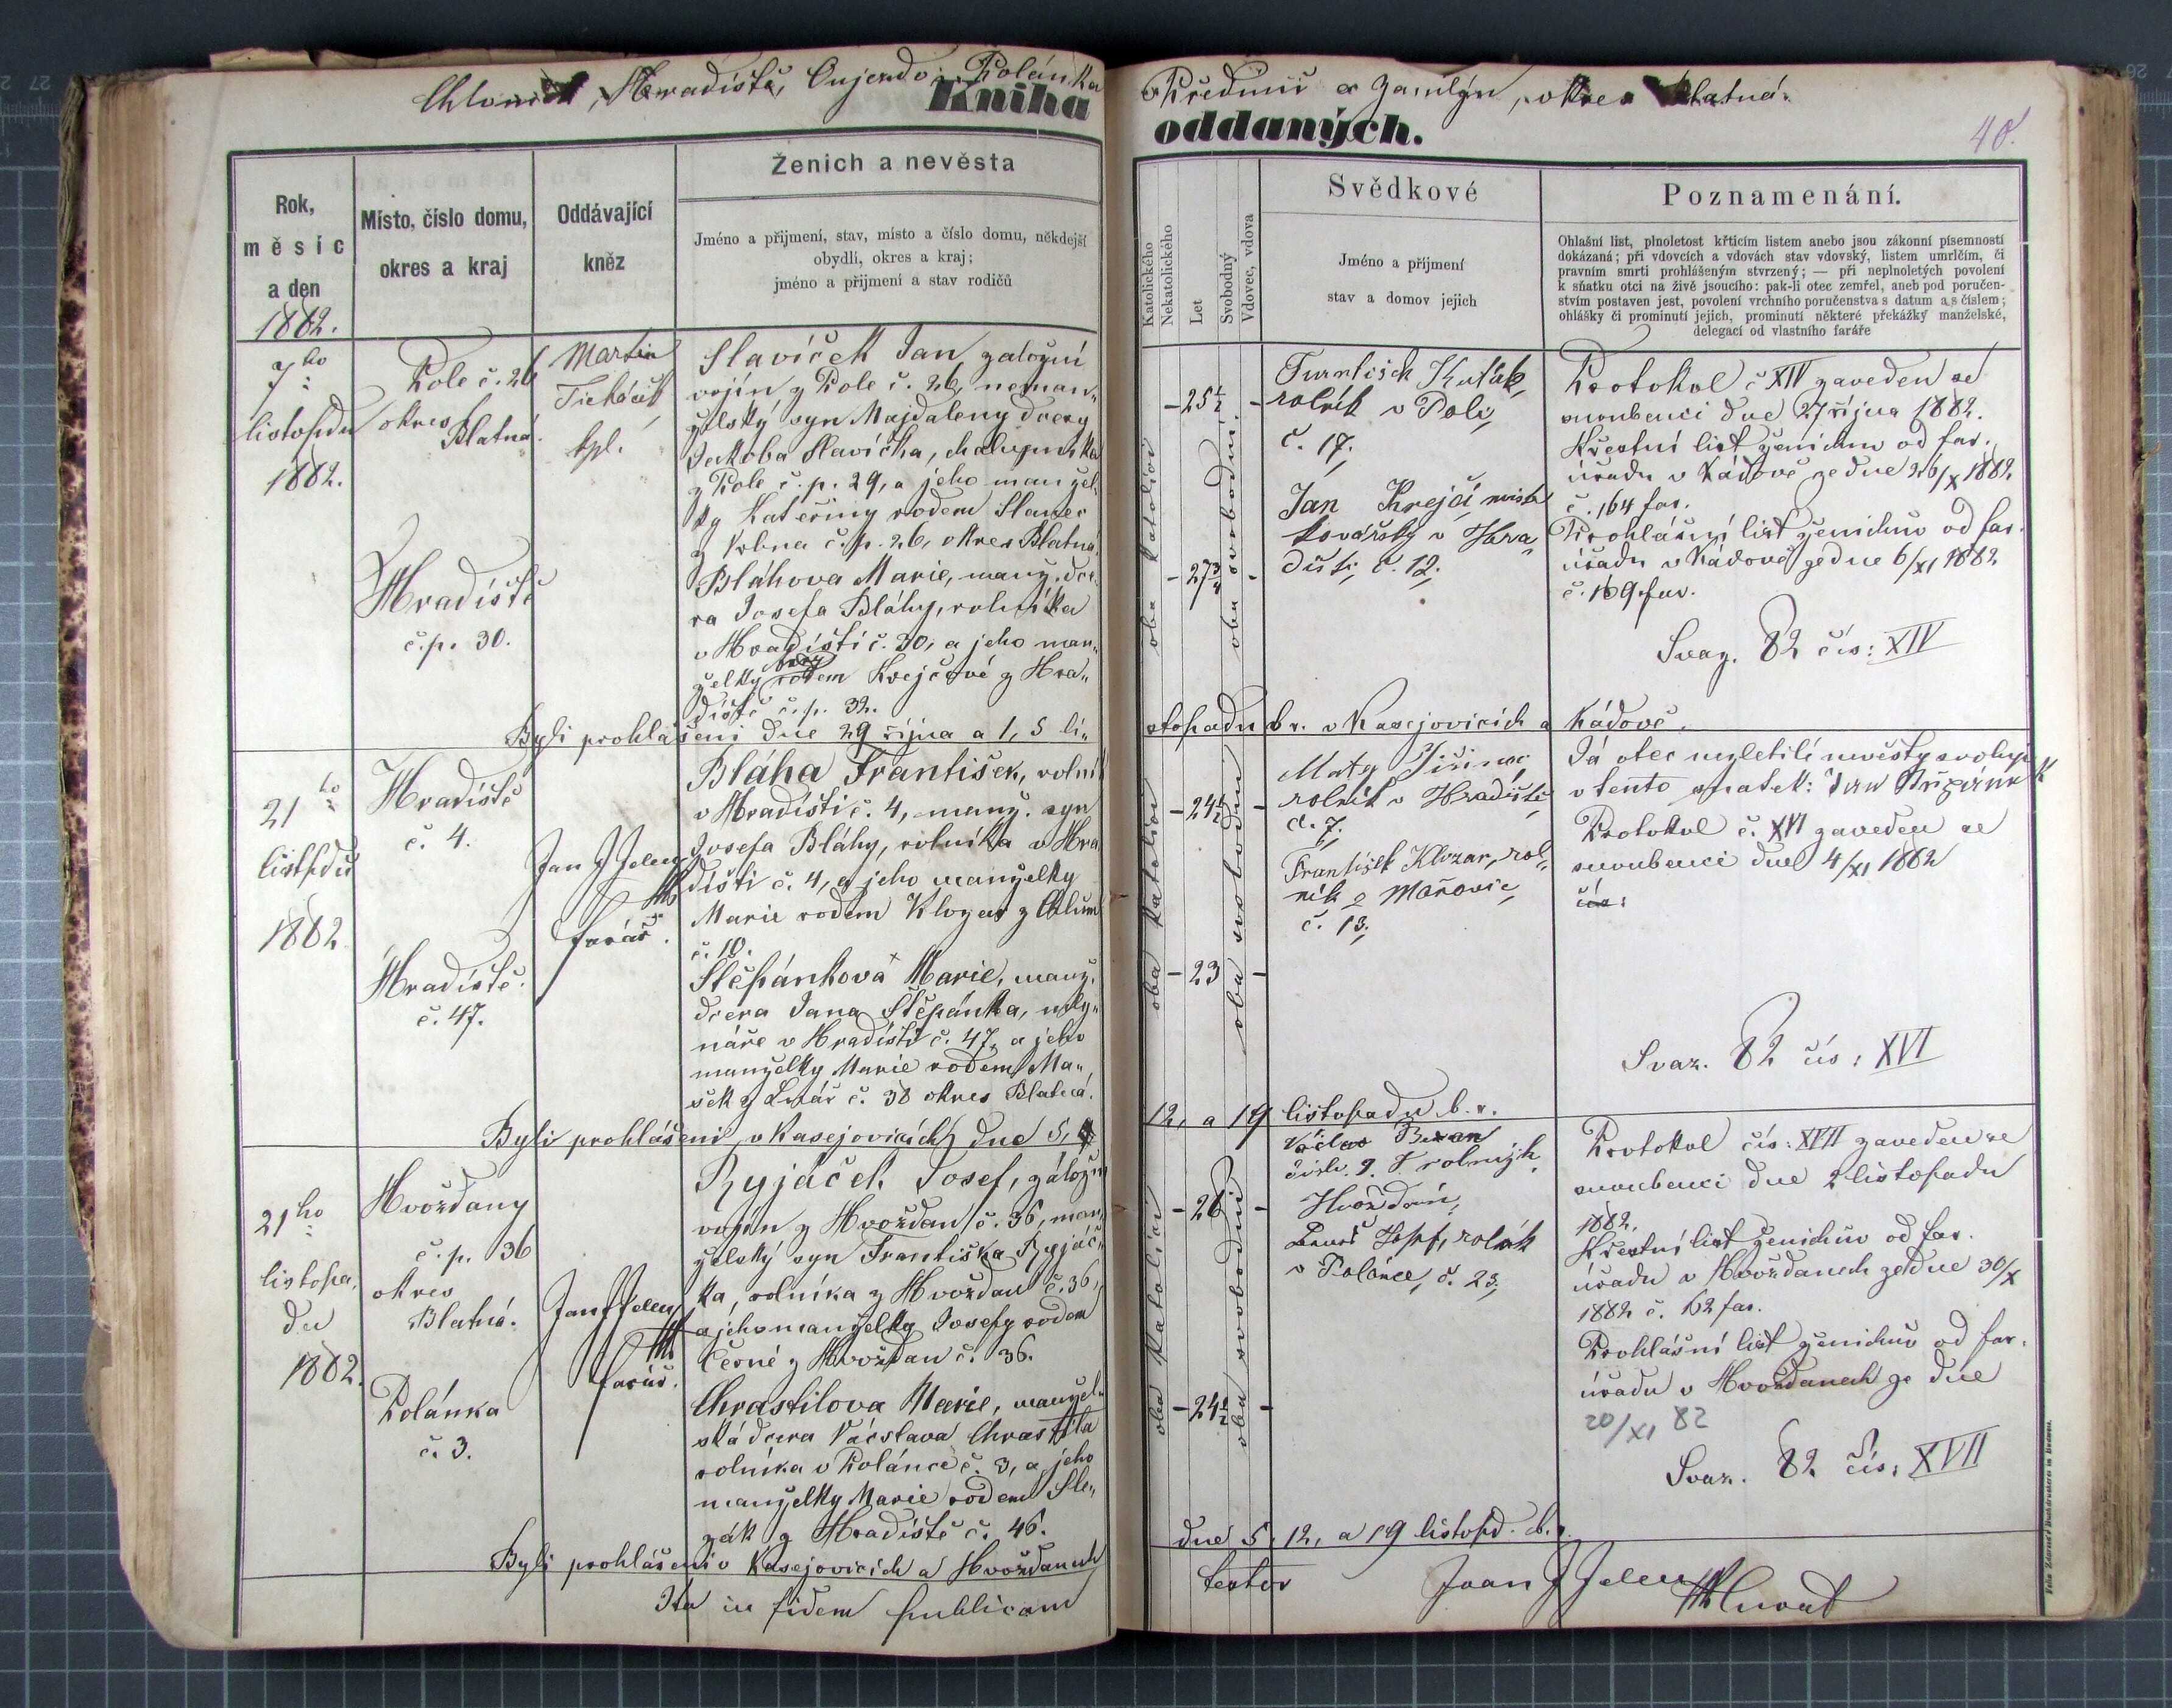 Hradiště, Polánka
Kniha
Předmíř a Zamlýn, okres Blatná.
oddaných.
40.
Rok,
měsíc
a den
1882.
Místo, číslo domu,
okres a kraj
Oddávající
kněz
Ženich a nevěsta
Jméno a přijmení, stav, místo a číslo domu, někdejší
obydlí, okres a kraj;
jméno a přijmení a stav rodičů
Katolického
Nekatolického
Let
Svobodný
Vdovec, vdova
Svědkové
Jméno a příjmení
stav a domov jejich
Poznamenání.
Ohlašní list, plnoletost křticím listem anebo jsou zákonní písemností
dokázaná; při vdovcích a vdovách stav vdovský, listem umrlčím, či
pravním smrti prohlášeným stvrzený; — při neplnoletých povolení
k sňatku otci na živě jsoucího: pak-li otec zemřel, aneb pod poručen-
stvím postaven jest, povolení vrchního poručenstva s datum a s číslem;
ohlášky či prominutí jejich, prominutí některé překážký manželské,
delegací od vlastního faráře
7ho
listopdu
1882.
Pole č. 26
okres
Blatná.
Hradiště
č.p. 30.
Martin
kpl.
Slavíček Jan, záložní
vojín z Pole č. 26, neman„
želský syn Majdaleny dcery
Jakoba Slavíčka, chalupníka
z Pole č.p. 29, a jeho manžel„
ky Kateřiny rodem Slanec
č.p. 26, okres Blatná.
Bláhova Marie, manž. dce„
ra Josefa Bláhy, rolníka
v Hradišti č. 30, a jeho man„
želky rodem Krejčové z Hra„
diště č.p. 32.
Byli prohlášeni dne 29 října a 1, 5 li„
oba katolíci
25½
27¾
oba svobodni
rolník v Poli,
č. 17.
Jan Krejčí mistr
kovářský v Hra„
dišti, č. 12.
Protokol č XIV zaveden se
snoubenci dne 27 října 1882.
Křestní list ženichův od far.
úřadu v Kádově ze dne 26/X 1882
č. 164 far.
Prohlášní list ženichův od far.
úřadu v Kádově ze dne 6/XI 1882
č. 169 far.
Svaz. 82 čís: XIV
stopadu b r. v Kasejovicích a Kádově.
21ho
listpdu
1882
Hradiště
č. 4.
Hradiště.
č. 47.
Jan J Jelen
farář.
Bláha František, rolní
v Hradišti č. 4, manž. syn
Josefa Bláhy, rolníka v Hra
dišti č. 4, a jeho manželky
Marie rodem Klozar z Chlum
č. 10.
Štěpánková Marie, manž.
dcera Jana Štěpánka, mly„
náře v Hradišti č. 47, a jeho
manželky Marie rodem Ma„
šek z Lnář č. 38 okres Blatná.
Byli prohlášeni v Kasejovicích dne 5,
oba katolíci
24½
23
oba svobodni
rolník v Hradišti
č. 7.
František Klozar, rol„
ník z Mačovic,
č. 13.
Já otec nezletilé nevěsty svoluji
v tento sňatek: Jan
Protokol č. XVI zaveden se
snoubenci dne 4/XI 1882
čís:
Svaz. 82 čís: XVI
12, a 19 listopadu b. r.
21ho
listopa„
du
1882.
Hvožďany
č.p. 36
okres
Blatná.
Polánka
č. 3.
Jan J Jelen
farář.
Ryjáček Josef, záložní
vojín z Hvožďan č. 36, man„
želský syn Františka Ryjáč„
ka, rolníka z Hvožďan č. 36,
a jeho manželky Josefy rodem
Černé z Hvožďan č. 36.
Chrastilova Marie, manžel„
ská dcera Vácslava Chrastila
rolníka v Polánce č. 3, a jeho
manželky Marie rodem Sle„
zák z Hradiště č. 46.
Byli prohlášeni v Kasejovicích a Hvožďanech
oba katolíci
26
24½
oba svobodni
Václav Beran
Hvožďan,
Josef, rolník
v Polánce, č. 23.
Protokol čís: XVII zaveden se
snoubenci dne 2 listopadu
1882.
Křestní list ženichův od far.
úřadu v Hvožďanech ze dne 30/X
1882 č. 162 far.
Prohlášní list ženichův od far.
úřadu v Hvožďanech ze dne
20/XI 82
Svaz. 82 čís: XVII
dne 5, 12, a 19 listopd. b. r.
Ita in fidem publicam
testor Joan J Jelen